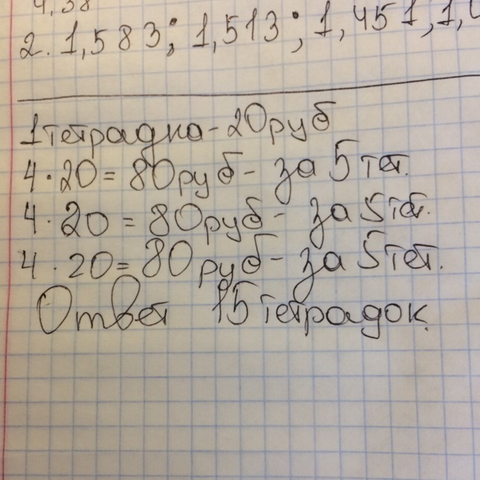 2. 1,583; 1,513; 1,451, 1,
1 тетрадка - 20 руб
4 · 20 = 80 руб - за 5 тет.
4 · 20 = 80 руб - за 5 тет.
4 · 20 = 80 руб - за 5 тет.
Ответ 15 тетрадок.